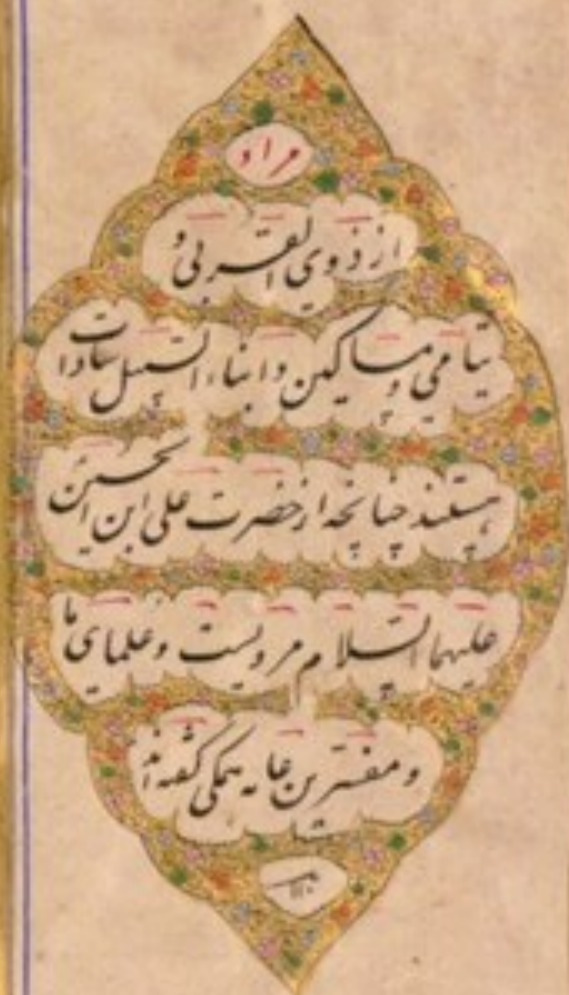 مراد
از ذوی القربی و
یتامی و مساکین و ابناء السبیل سادات
هستند چنانچه از حضرت علی ابن الحسین
علیهما السلام مرویست و علمای ما
و مفسرین عامه همگی گفته اند